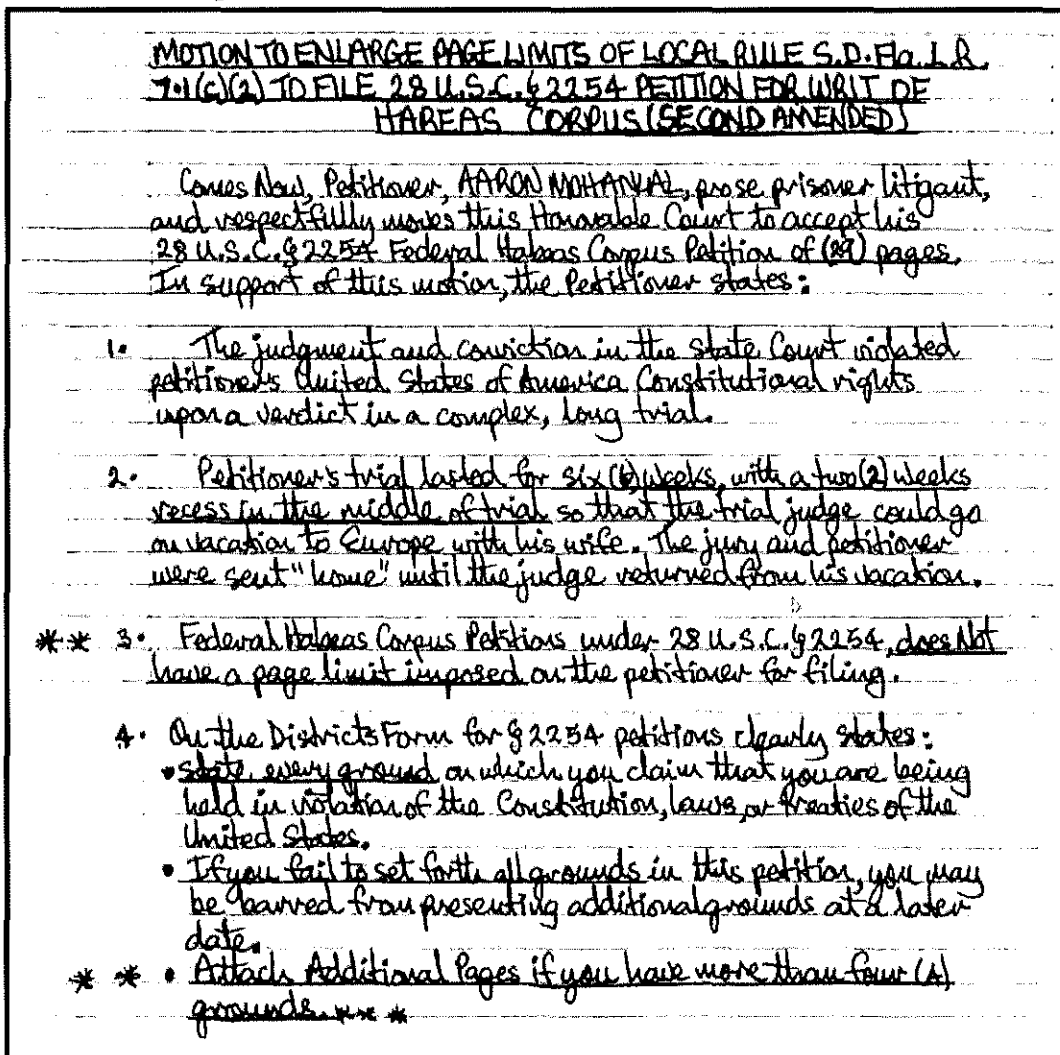 MOTION TO ENLARGE PAGE LIMITS OF LOCAL RULE S.D. Fla. L.R.
7.1(c)(2) TO FILE 28 U.S.C. § 2254 PETITION FOR WRIT OF
HABEAS CORPUS (SECOND AMENDED)
Comes Now, Petitioner, AARON MOHANLAL, prose prisoner litigant,
and respectfully moves this Honorable Court to accept his
28 U.S.C. § 2254 Federal Habeas Corpus Petition of (29) pages.
In support of this motion, the Petitioner states:
1. The judgment and conviction in the State Court violated
petitioner's United States of America Constitutional rights
upon a verdict in a complex, long trial.
2. Petitioner's trial lasted for six (6) weeks, with a two (2) weeks
recess in the middle of trial so that the trial judge could go
on vacation to Europe with his wife. The jury and petitioner
were sent "home" until the judge returned from his vacation.
** 3. Federal Habeas Corpus Petitions under 28 U.S.C. § 2254, does Not
have a page limit imposed on the petitioner for filing.
4. On the Districts Form for § 2254 petitions clearly states:
• State every ground on which you claim that you are being
held in violation of the Constitution, laws, or treaties of the
United States.
• If you fail to set forth all grounds in this petition, you may
be barred from presenting additional grounds at a later
date.
* * • Attach Additional Pages if you have more than four (4)
grounds. ** *